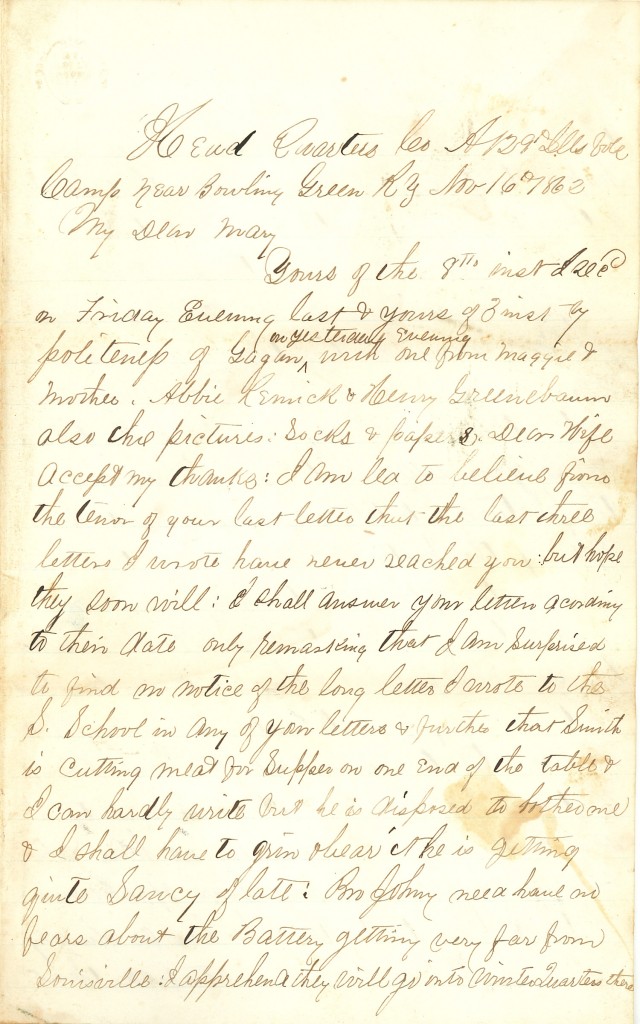 Head Quarters Co A 129th Ills Vols
Camp near Bowling Green Ky Nov 16th 1862
My Dear Mary
Yours of the 8th inst I Recd
on Friday Evening last & yours of 3 inst by
politeness of Gagan, on yesterday Evening with one from Maggie &
Mother. Abbie Remick & Henry Greenebaum
also the pictures: Socks & papers. Dear Wife
accept my thanks: I am led to believe from
the tenor of your last letter that the last three
letters I wrote have never reached you: but hope
they soon will: I shall answer your letters acording
to their date only remarking that I am Surprised
to find no notice of the long letter I wrote to the
S. School in any of your letters & further that Smith
is cutting meat for Supper on one End of the table &
I can hardly write but he is disposed to bother me
& I shall have to grin & bear it he is getting
quite Saucy of late: Bro Johny need have no
fears about the Battery getting very far from
Louisville: I apprehend they will go into Winter Quarters there